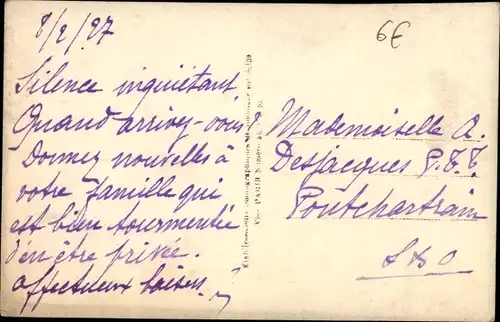 8/2/27
6€
Silence inquiétant
Quand arrivez-vous?
Donnez nouvelles à
votre famille qui
est bien tourmentée
d'en être privée.
affectueux baisers
Mademoiselle A.
Desjacques P.T.T.
Pontchartrain
S & O